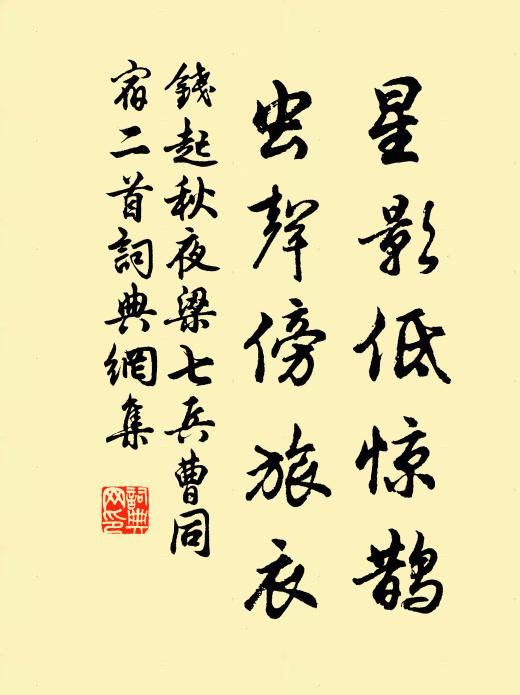 星影低惊鹊
虫聲傍旅衣
錢起秋夜梁七兵曹同
宿二首詞典網集
詞典网印